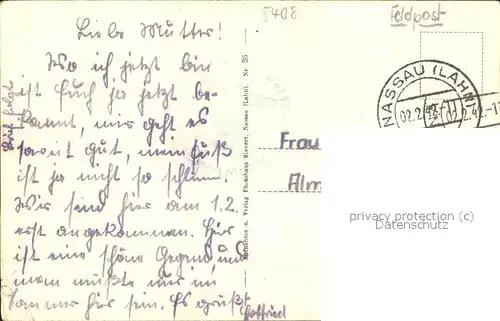 5408
Feldpost
Liebe Mutter!
Wo ich jetzt bin
ist Euch ja jetzt be-
kannt, mir geht es
soweit gut, mein Fuß
ist ja nicht so schlimm.
Wir sind hier am 1.2.
erst angekommen. Hier
ist eine schöne Gegend, und
man müßte nur im
Sommer hier sein. Es grüßt
Gottfried
Brief folgt
Aufnahme u. Verlag Photohaus Sievert, Nassau (Lahn). Nr. 26
NASSAU (LAHN)
02.2.42
02.2.42.-1
Frau
Alm
privacy protection (c)
Datenschutz